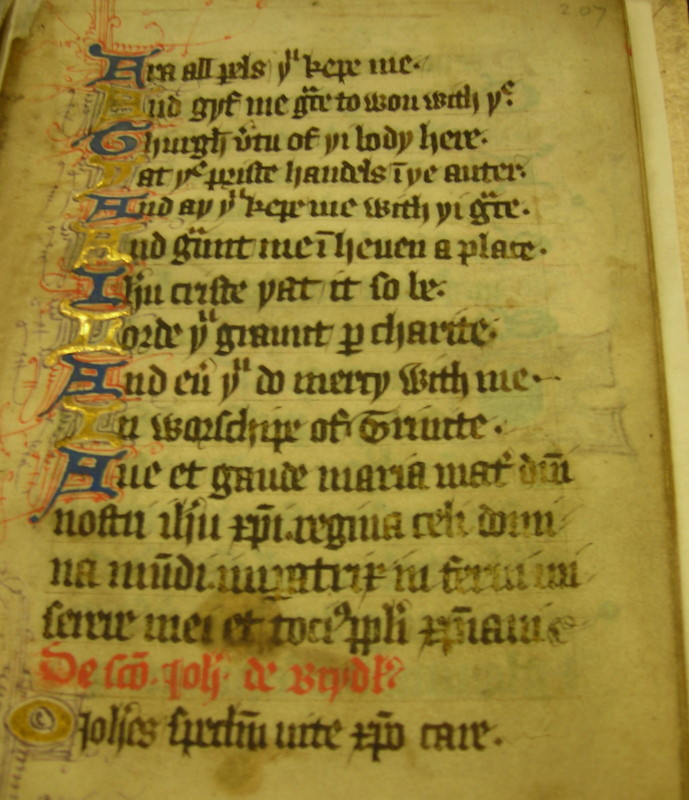 207
Ara all pels yu kepe me.
And gyf me gace to won with ye.
Thurgh vertu of yi body here.
Yat ye prste handels i ye auter.
And ay yu kepe me with yi gace.
And gunt me i heven a place.
Ihu criste yat it so be.
Lorde yu graunt p charite.
And eu yu do mercy with me.
In worschipe of Trinite.
Aue et gaude maria mat dni
nostri ihu xpi regina celi domi
na mudi impatrix inferni mi
serere mei et toci ppli xpiani
De sco. Joh. de Brydl
O Johes speclm uite xpo care.